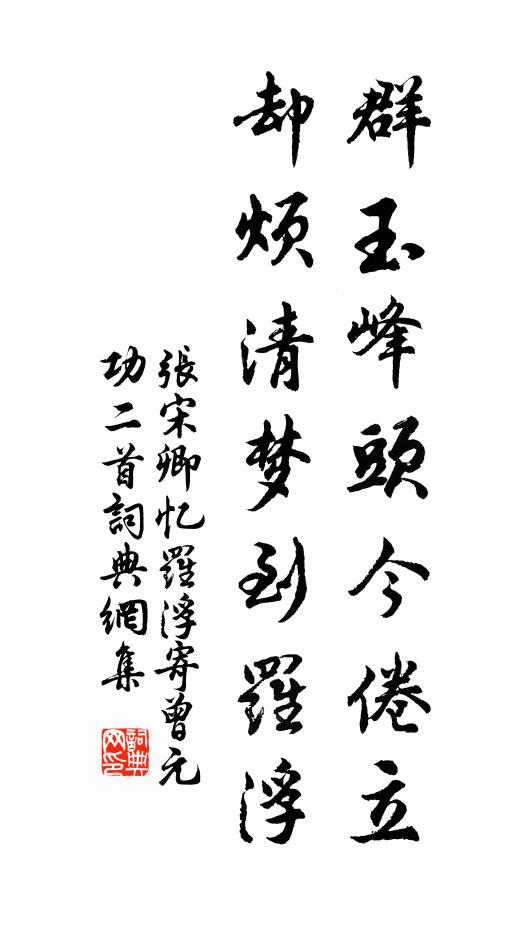 群玉峰頭今倦立
却煩清梦到羅浮
張宋卿忆羅浮寄曾元
功二首詞典網集
詞典网印